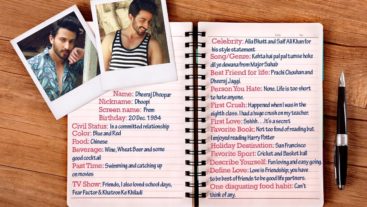 Name: Dheeraj Dhoopar
Nickname: Dhoopi
Screen name: Prem
Birthday: 20 Dec, 1984
Civil Status: In a committed relationship
Color: Blue and Red
Food: Chinese
Beverage: Wine, Wheat Beer and some
good cocktail
Past Time: Swimming and catching up
on movies
TV Show: Friends, I also loved school days,
Fear Factor & Khatron Ke Khiladi
Celebrity: Alia Bhatt and Saif Ali Khan for
his style statement
Song/Genre: Kehta hai pal pal tumse hoke
dil ye dewana from Major Sahab
Best Friend for life: Prachi Chauhan and
Dheeraj, Jaggi.
Person You Hate: None. Life is too short
to hate anyone.
First Crush: Happened when I was in the
eighth class. I had a huge crush on my teacher.
First Love: Sshhh... It's a secret
Favorite Book: Not too fond of reading but
I enjoyed reading Harry Potter
Holiday Destination: San Francisco
Favorite Sport: Cricket and Basket ball
Describe Yourself: Fun loving and easy going.
Define Love: Love is Friendship; you have
to be best of friends to be good life partners.
One disgusting food habit: Can't
think of any.